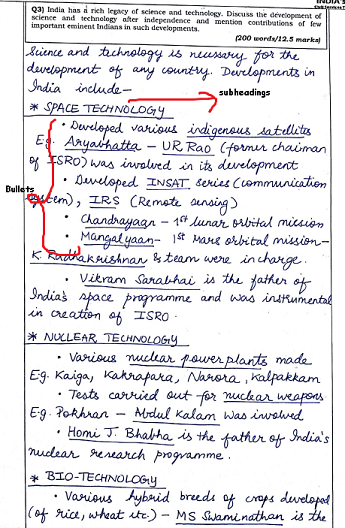 INDIA'S
Q3) India has a rich legacy of science and technology. Discuss the development of
science and technology after independence and mention contributions of few
important eminent Indians in such developments.
(200 words/12.5 marks)
Science and technology is necessary for the
development of any country. Developments in
India include—
subheadings
* SPACE TECHNOLOGY
• Developed various indigenous satellites
Eg. Aryabhatta – UR Rao (former chaiman
of ISRO) was involved in its development
Bullets
• Developed INSAT series (communication
system), IRS (Remote sensing)
• Chandrayaan – 1st lunar orbital mission
• Mangalyaan – 1st Mars orbital mission –
K. Radhakrishnan & team were in charge.
• Vikram Sarabhai is the father of
India's space programme and was instrumental
in creation of ISRO.
* NUCLEAR TECHNOLOGY
• Various nuclear power plants made
Eg. Kaiga, Kakrapara, Narora, Kalpakkam
• Tests carried out for nuclear weapons
Eg. Pokhran – Abdul Kalam was involved
• Homi J. Bhabha is the father of India's
nuclear research programme.
* BIO-TECHNOLOGY
• Various hybrid breeds of crops developed
(of rice, wheat etc.) – MS Swaminathan is the